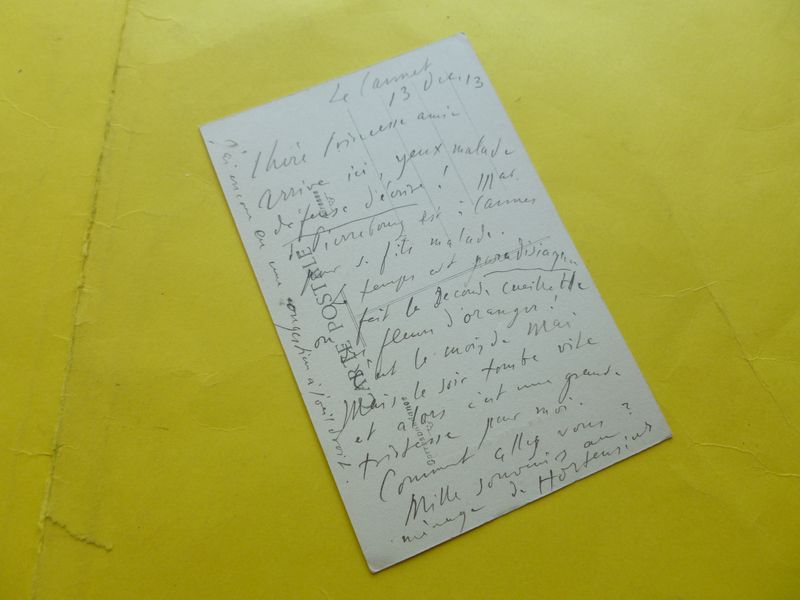 Le Cannet
13 Dec. 13
Chère Princesse amie
Arrivé ici, yeux malade
défense d'écrire! Mad.
de Pierrebourg est à Cannes
pour sa fille malade.
temps est paradisiaque
on fait la seconde cueillette
de fleurs d'oranger!
c'est le mois de Mai.
Mais le soir tombe vite
et alors c'est une grande
tristesse pour moi.
Comment allez vous?
Mille souvenirs au
ménage de Hortensias
J'ai encore eu une congestion à l'œil droit.
CARTE POSTALE
Correspondance